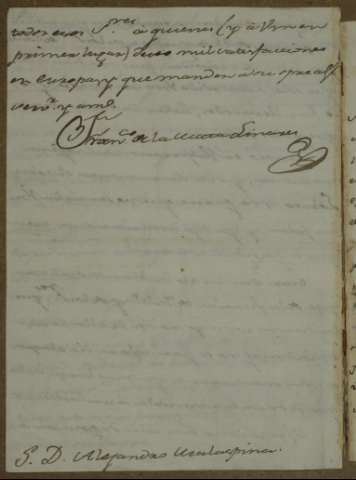 todos esos S.res a quienes (y a Vm en
primer lugar) deseo mil satisfacciones
en Europa y que manden a su apas.do
serv.r y am.o
Fran.co de la Mata Linares
S. D. Alejandro Malaspina.